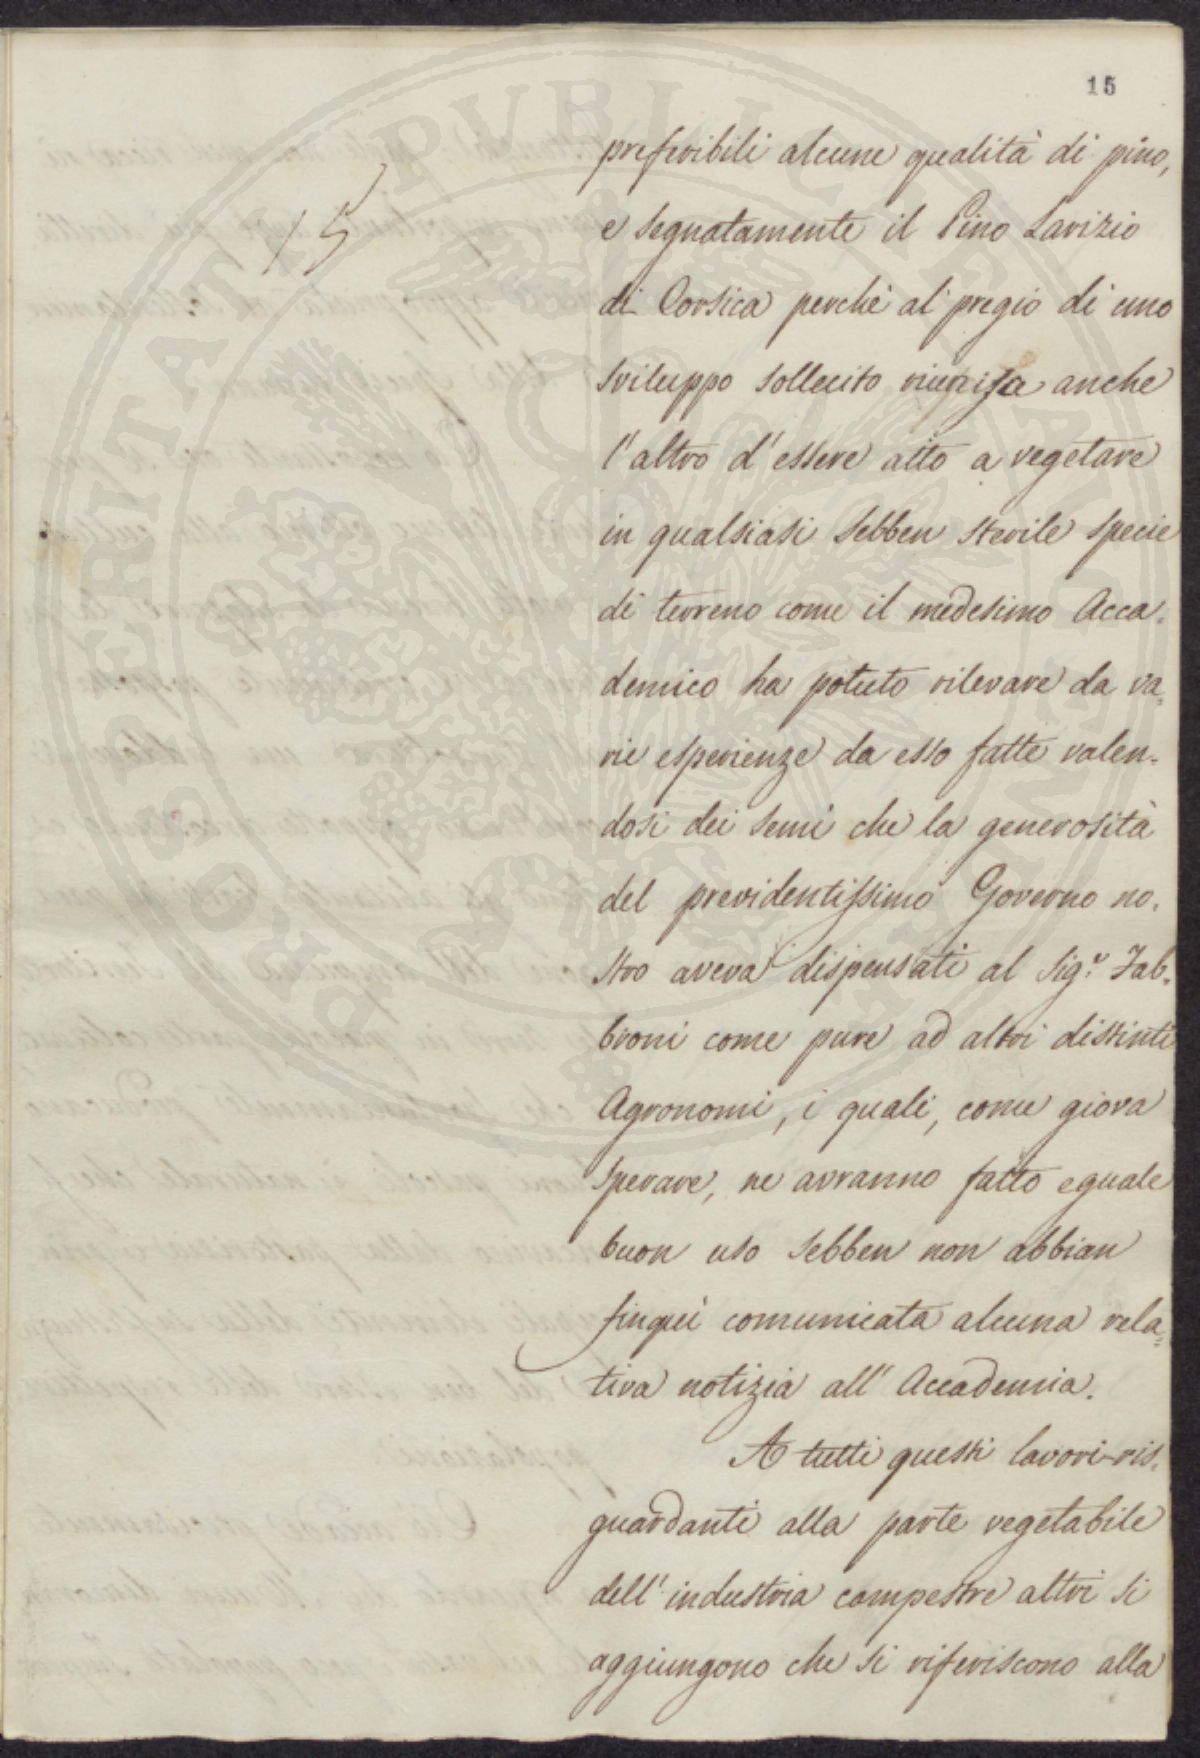 15
15
preferibili alcune qualità di pino,
e segnatamente il Pino Larizio
di Corsica perchè al pregio di uno
sviluppo sollecito riunisca anche
l'altro d'essere atto a vegetare
in qualsiasi sebben sterile specie
di terreno come il medesimo Acca-
demico ha potuto rilevare da va-
rie esperienze da esso fatte valen-
dosi dei semi che la generosità
del previdentissimo Governo no-
stro aveva dispensati al Sig.r Fab-
broni come pure ad altri distinti
Agronomi, i quali, come giova
sperare, ne avranno fatto eguale
buon uso sebben non abbian
finquì comunicata alcuna rela-
tiva notizia all'Accademia.
A tutti questi lavori ris-
guardanti alla parte vegetabile
dell'industria campestre altri si
aggiungono che si riferiscono alla
PROSPERITATI PUBLICAE AUGENDAE